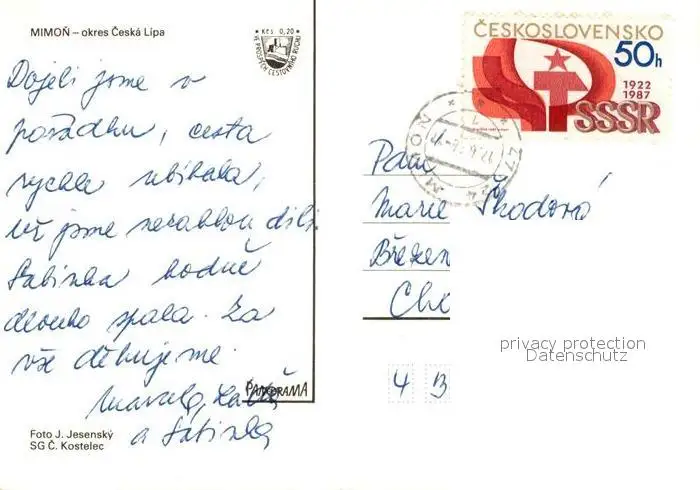 MIMOŇ – okres Česká Lípa
Kčs 0,20
VE PROSPĚCH CESTOVNÍHO RUCHU
Dojeli jsme v
pořádku, cesta
rychle ubíhala,
už jsme nezabloudili.
Sabinka hodně
dlouho spala. Za
vše děkujeme.
Marcela,
a Sabinka
PANORAMA
Foto J. Jesenský
SG Č. Kostelec
ČESKOSLOVENSKO
50h
1922
1987
SSSR
Paní
Marie Škodová
Březen
Cho
4 B
privacy protection
Datenschutz